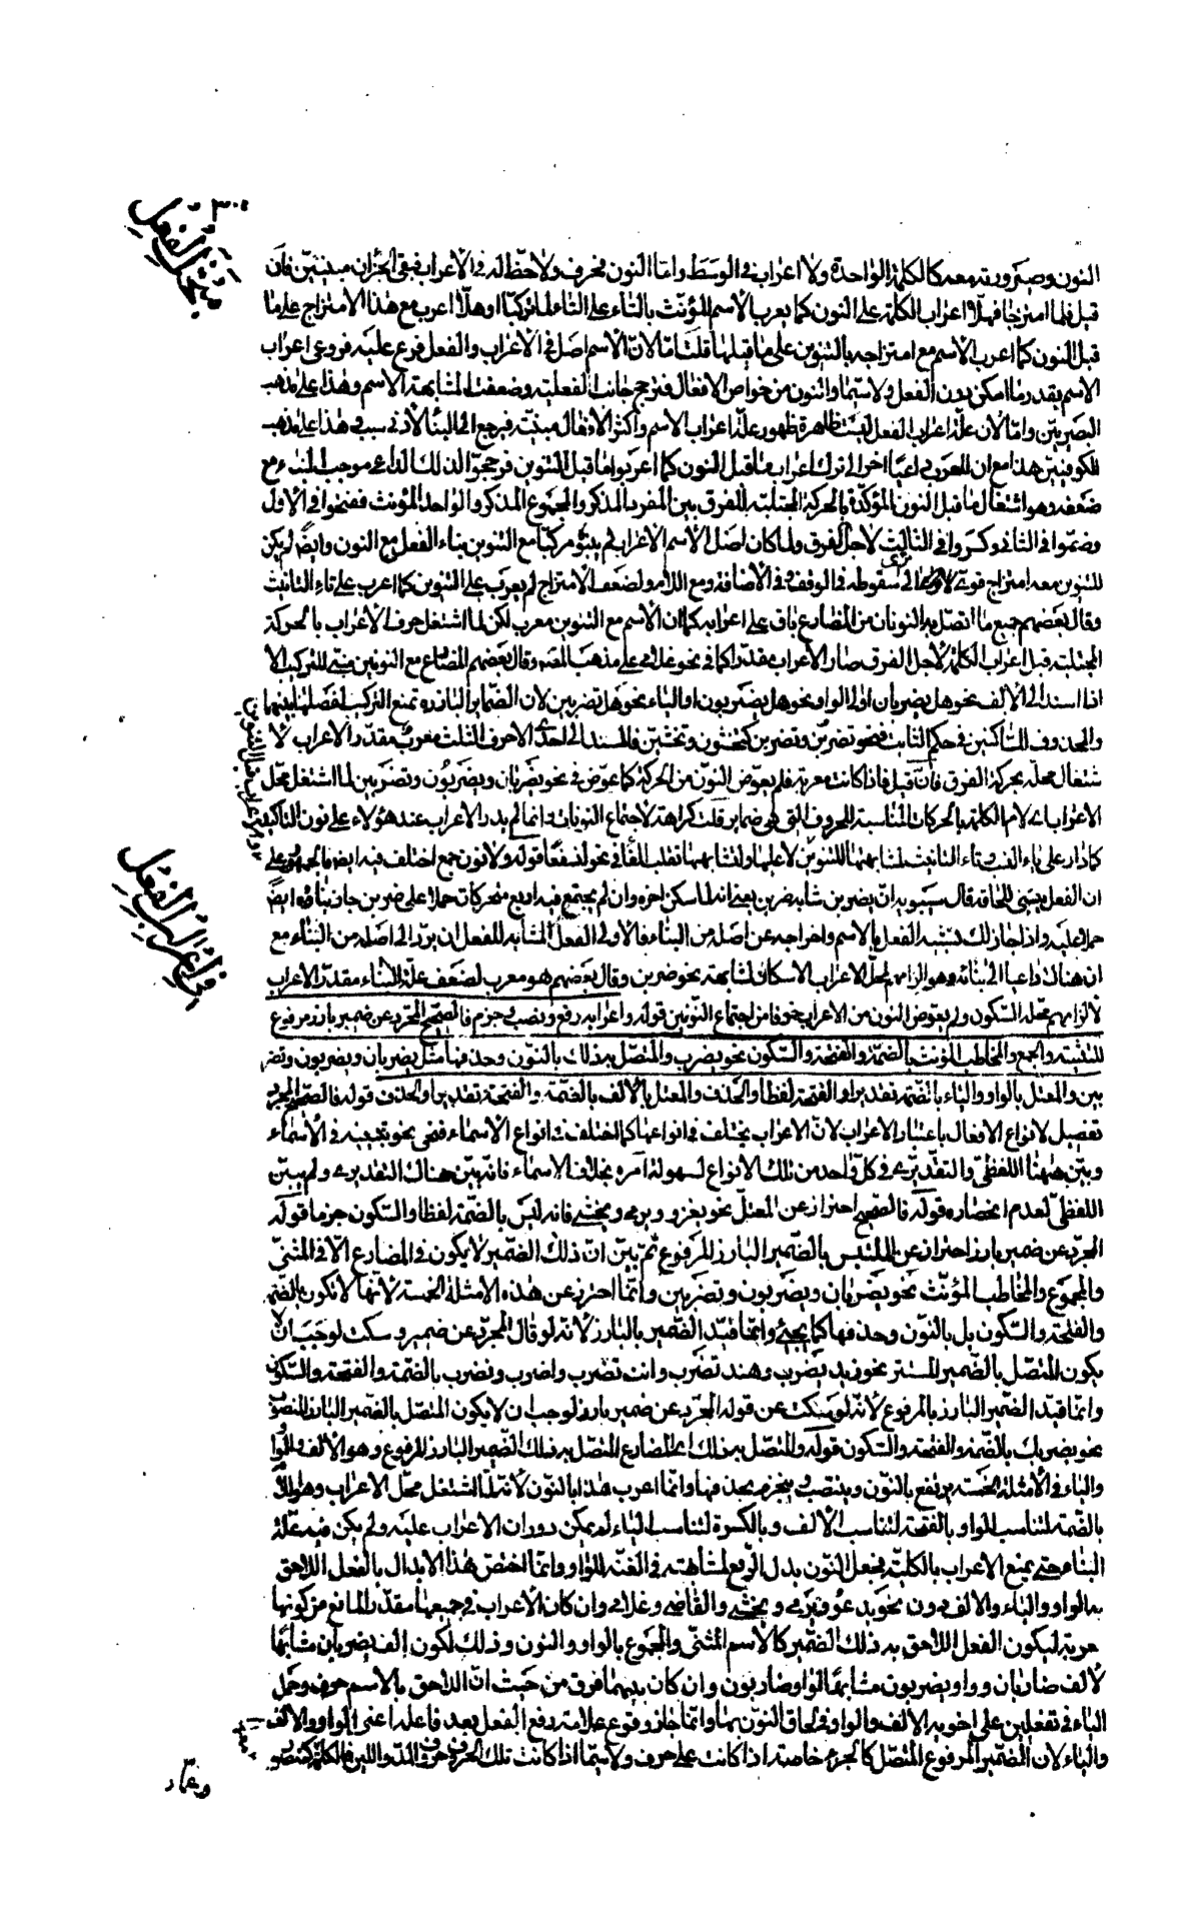 ٣٠٠
مبحث الفعل
النون وصيرورته معه كالكلمة الواحدة ولا اعراب فى الوسط واما النون فحرف ولا حظ له فى الأعراب فبقى الجزءان مبنيين فان
قيل فلما امتزجا فهلا اعراب الكلمة على النون كما يعرب الأسم المؤنث بالتاء على التاء لما تركبا او هلا اعرب مع هذا الامتزاج على ما
قبل النون كما اعرب الأسم مع امتزاجه بالتنوين على ما قبلها قلت اما لان الأسم اصل فى الأعراب والفعل فرع عليه فروعى اعراب
الاسم بقدر ما امكن دون الفعل ولا سيما والنون من خواص الافعال فترجح جانب الفعلية وضعفت المشابهة الاسم وهذا على مذهب
البصريين واما لان علة اعراب الفعل ليست ظاهرة ظهور علة اعراب الاسم واكثر الافعال مبنية فيرجع الى البناء لأدنى سبب وهذا على مذهب
الكوفيين هذا مع ان للعرب داعيا اخر الى ترك اعراب ما قبل النون كما اعربوا ما قبل التنوين فرجحوا لذلك الداعى موجب البناء مع
ضعفه وهو اشتغال ما قبل النون المؤكدة بالحركة المجتلبة للفرق بين المفرد المذكر والمجموع المذكر والواحد المؤنث ففتحوا فى الاول
وضموا فى الثانى وكسروا فى الثالث لأجل الفرق ولما كان اصل الأسم الأعراب لم يبنوه مركبا مع التنوين بناء الفعل مع النون وايضا لم يكن
للتنوين معه امتزاج قوى الا ترى الى سقوطه فى الوقف وفى الأضافة ومع اللام ولضعف الأمتزاج لم يعرب على التنوين كما اعرب على تاء التانيث
وقال بعضهم جميع ما اتصل به النونان من المضارع باق على اعرابه كما ان الأسم مع التنوين معرب لكن لما اشتغل حرف الأعراب بالحركة
المجتلبة قبل اعراب الكلمة لأجل الفرق صار الأعراب مقدرا كما فى نحو غلامى على مذهب المصنف وقال بعضهم المضارع مع النونين مبنى للتركيب الا
اذا اسند الى الألف نحو هل يضربان او الى الواو نحو هل يضربون او الياء نحو هل تضربين لان الضمائر البارزة تمنع التركيب لفصلها بينهما
والمحذوف للساكنين فى حكم الثابت فنحو تضربن وتضربن كتخشون وتخشين فالمسند الى احدى الاحرف الثلث معرب مقدر الأعراب لا
شتغال محله بحركة الفرق فان قيل فاذا كانت معربة فلم يعوض النون من الحركة كما عوض فى نحو يضربان ويضربون وتضربين لما اشتغل محل
الاعراب اى لام الكلمة بالحركات المناسبة للحروف التى هى ضمائر قلت كراهة لأجتماع النونات وانما لم يدر الأعراب عند هؤلاء على نون التاكيد
ودار الاعراب قبل التنوين
كما دار على ياء النسب وتاء التانيث لمشابهتها للتنوين لا عليها ولمشابهتهما تقلب الفا فى نحو لنسفعا قوله ولا نون جمع اختلف فيه ايضا فالجمهور على
فى اعراب الفعل
ان الفعل يبنى للحاقه قال سيبويه ان يضربن شابه ضربن يعنى انه لما سكن اخره وان لم يجتمع فيه اربع متحركات حملا على ضربن جاز بناؤه ايضا
حملا عليه واذا جاز لك تشبيه الفعل بالاسم واخراجه عن اصله من البناء فالأولى الفعل المشابه للفعل ان يرد الى اصله من البناء مع
ان هناك داعيا الى بنائه وهو الزامهم محل الاعراب الاسكان لمشابهته نحو ضربن وقال بعضهم هو معرب لضعف علة البناء مقدر الاعراب
لألزامهم محله السكون ولم يعوض النون من الاعراب خوفا من اجتماع النونين قوله واعرابه رفع ونصب وجزم فالصحيح المجرد عن ضمير بارز مرفوع
للتثنية والجمع والمخاطب المؤنث بالضمة والفتحة والسكون نحو يضرب والمتصل به ذلك بالنون وحذفها مثل يضربان ويضربون وتضر
بين والمعتل بالواو والياء بالضمة تقديرا والفتحة لفظا والحذف والمعتل بالألف بالضمة والفتحة تقديرا والحذف قوله فالصحيح المجرد
تفصيل لأنواع الأفعال باعتبار الاعراب لان الاعراب يختلف فى انواعها كما اختلف فى انواع الأسماء فنحى نحو تبيينه فى الأسماء
وبين ههنا اللفظى والتقديرى فى كل واحد من تلك الأنواع لسهولة امره بخلاف الاسماء فانه بين هناك التقديرى ولم يبين
اللفظى لعدم انحصاره قوله فالصحيح احتراز عن المعتل نحو يغزو ويرمى ويخشى فانه ليس بالضمة لفظا والسكون جزما قوله
المجرد عن ضمير بارز احتراز عن المتلبس بالضمير البارز المرفوع ثم بين ان ذلك الضمير لا يكون فى المضارع الا فى المثنى
والمجموع والمخاطب المؤنث نحو يضربان ويضربون وتضربين وانما احترز عن هذه الامثلة الخمسة لأنها لا تكون بالضمة
والفتحة والسكون بل بالنون وحذفها كما يجئ وانما قيد الضمير بالبارز لأنه لو قال المجرد عن ضمير وسكت لوجب ان لا
يكون المتصل بالضمير المستتر نحو زيد يضرب وهند تضرب وانت تضرب واضرب ونضرب بالضمة والفتحة والسكون
وانما قيد الضمير البارز بالمرفوع لأنه لو سكت عن قوله المجرد عن ضمير بارز لوجب ان لا يكون المتصل بالضمير البارز المنصوب
نحو يضربك بالضمة والفتحة والسكون قوله والمتصل به ذلك اى المضارع المتصل به ذلك الضمير البارز المرفوع وهو الألف والواو
والياء فى الأمثلة الخمسة يرتفع بالنون وينتصب وينجزم بحذفها وانما اعرب هذا بالنون لأنه لما اشتغل محل الاعراب وهو اللام
بالضمة لتناسب الواو بالفتحة لتناسب الألف وبالكسرة لتناسب الياء لم يمكن دوران الاعراب عليه ولم يكن فيه علة
البناء حتى يمنع الاعراب بالكلية فجعل النون بدل الرفع لمشابهته فى الغنة للواو وانما اختص هذا الابدال بالفعل اللاحق
به الواو والياء والألف دون نحو يدعو ويرمى ويخشى والقاضى وغلامى وان كان الأعراب فى جميعها مقدرا لمانع من كونها
حرفة ليكون الفعل اللاحق به ذلك الضمير كالأسم المثنى والمجموع بالواو والنون وذلك لكون الف يضربان مشابها
لألف ضاربان وواو يضربون مشابها لواو ضاربون وان كان بينهما فرق من حيث ان اللاحق بالأسم حرف وحمل
الياء فى تفعلين على اخويه الألف والواو فى لحاق النون بها وانما جاز وقوع علامة رفع الفعل بعد فاعله اعنى الواو والالف
والياء لان الضمير المرفوع المتصل كالجزء خاصة اذا كانت على حرف ولا سيما اذا كانت تلك الحروف حرف المد واللين فالكلمة كمنصور
وعمار